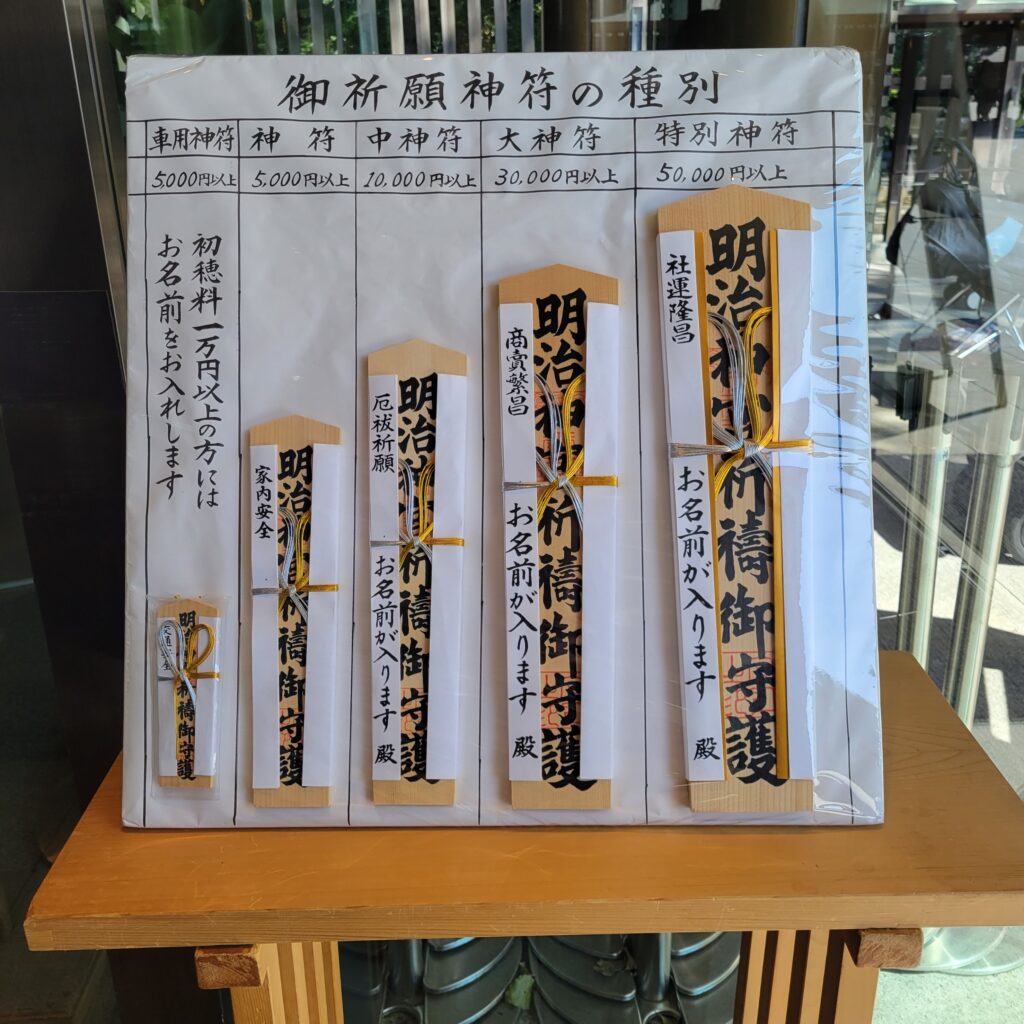 御祈願神符の種別
車用神符 神符 中神符 大神符 特別神符
5,000円以上 5,000円以上 10,000円以上 30,000円以上 50,000円以上
初穂料一万円以上の方には
お名前をお入れします
交通安全
明 祈禱御守護
家内安全
明治神 祈禱御守護
厄祓祈願
お名前が入ります 殿
明治 禱御守護
商売繁昌
お名前が入ります 殿
明治神 祈禱御守護
社運隆昌
お名前が入ります 殿
明治神宮祈禱御守護